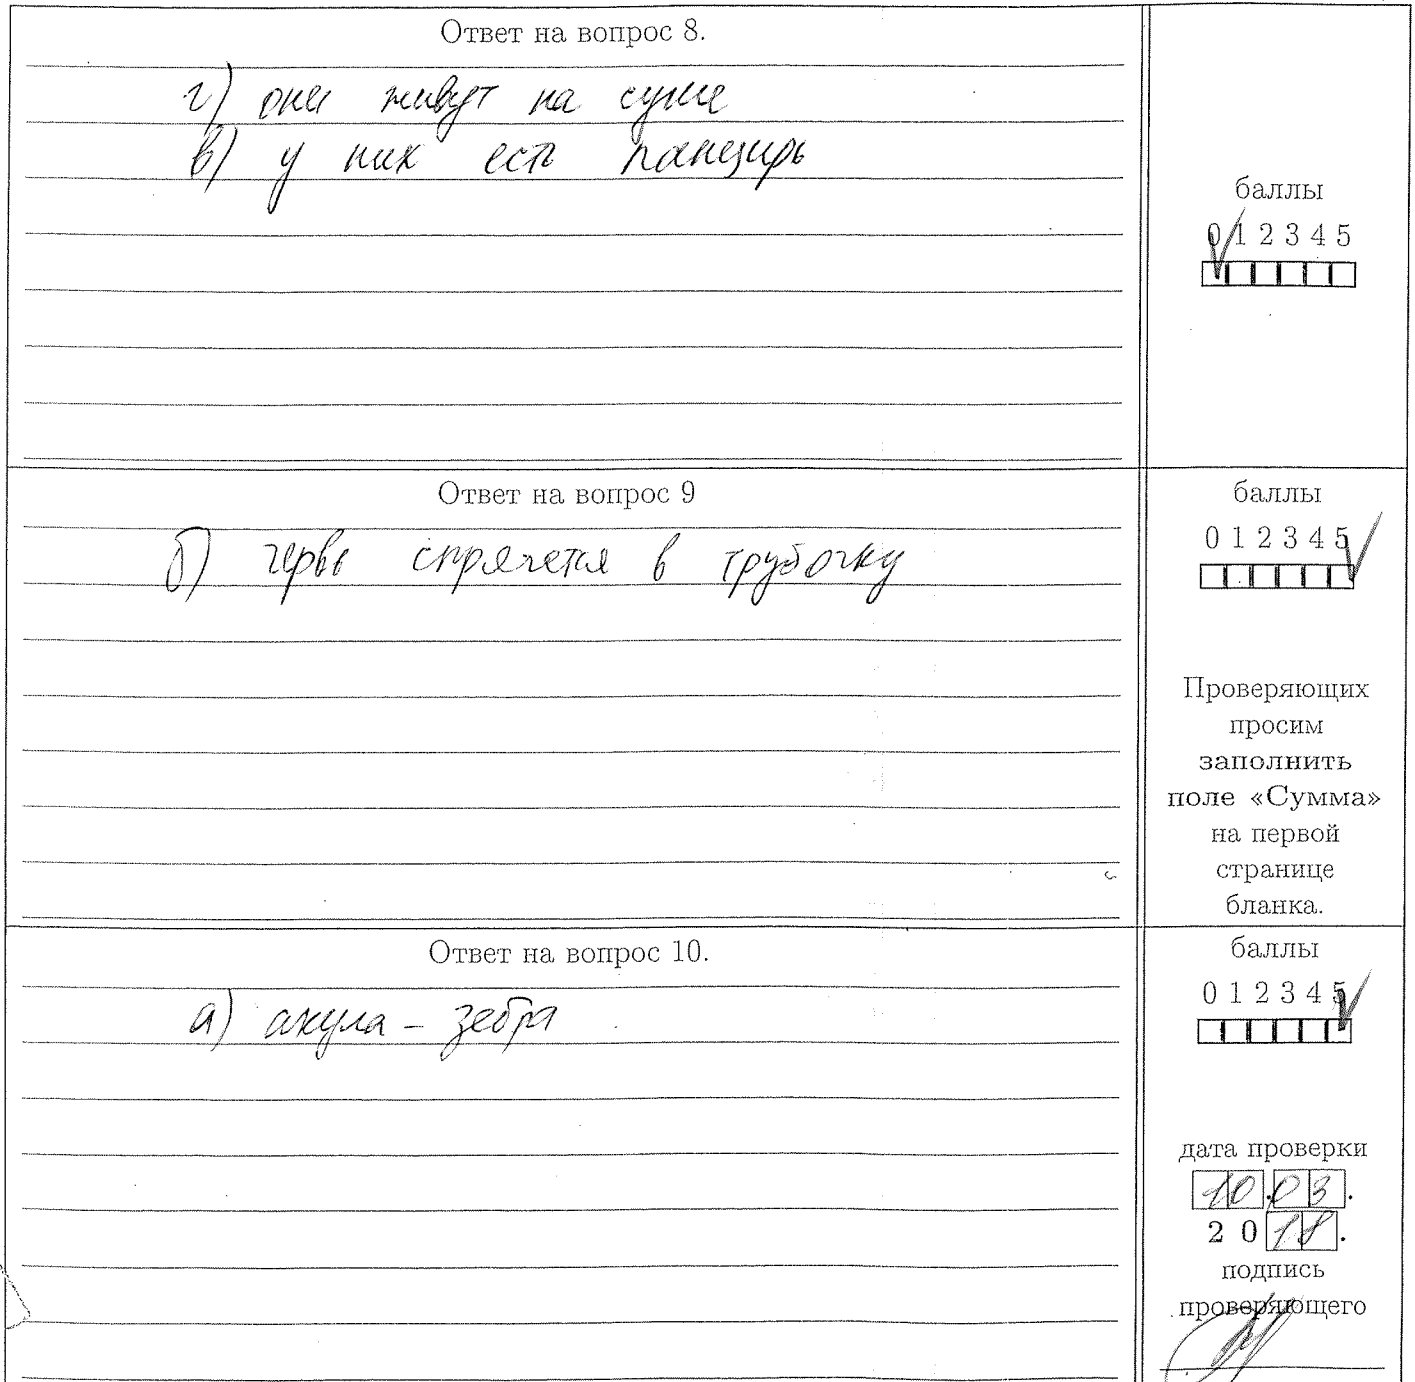 Ответ на вопрос 8.
г) они живут на суше
в) у них есть панцирь
баллы
0 1 2 3 4 5
Ответ на вопрос 9
б) червь спрячется в трубочку
баллы
0 1 2 3 4 5
Проверяющих
просим
заполнить
поле «Сумма»
на первой
странице
бланка.
Ответ на вопрос 10.
а) акула – зебра
баллы
0 1 2 3 4 5
дата проверки
10.03.
2 0 18.
подпись
проверяющего